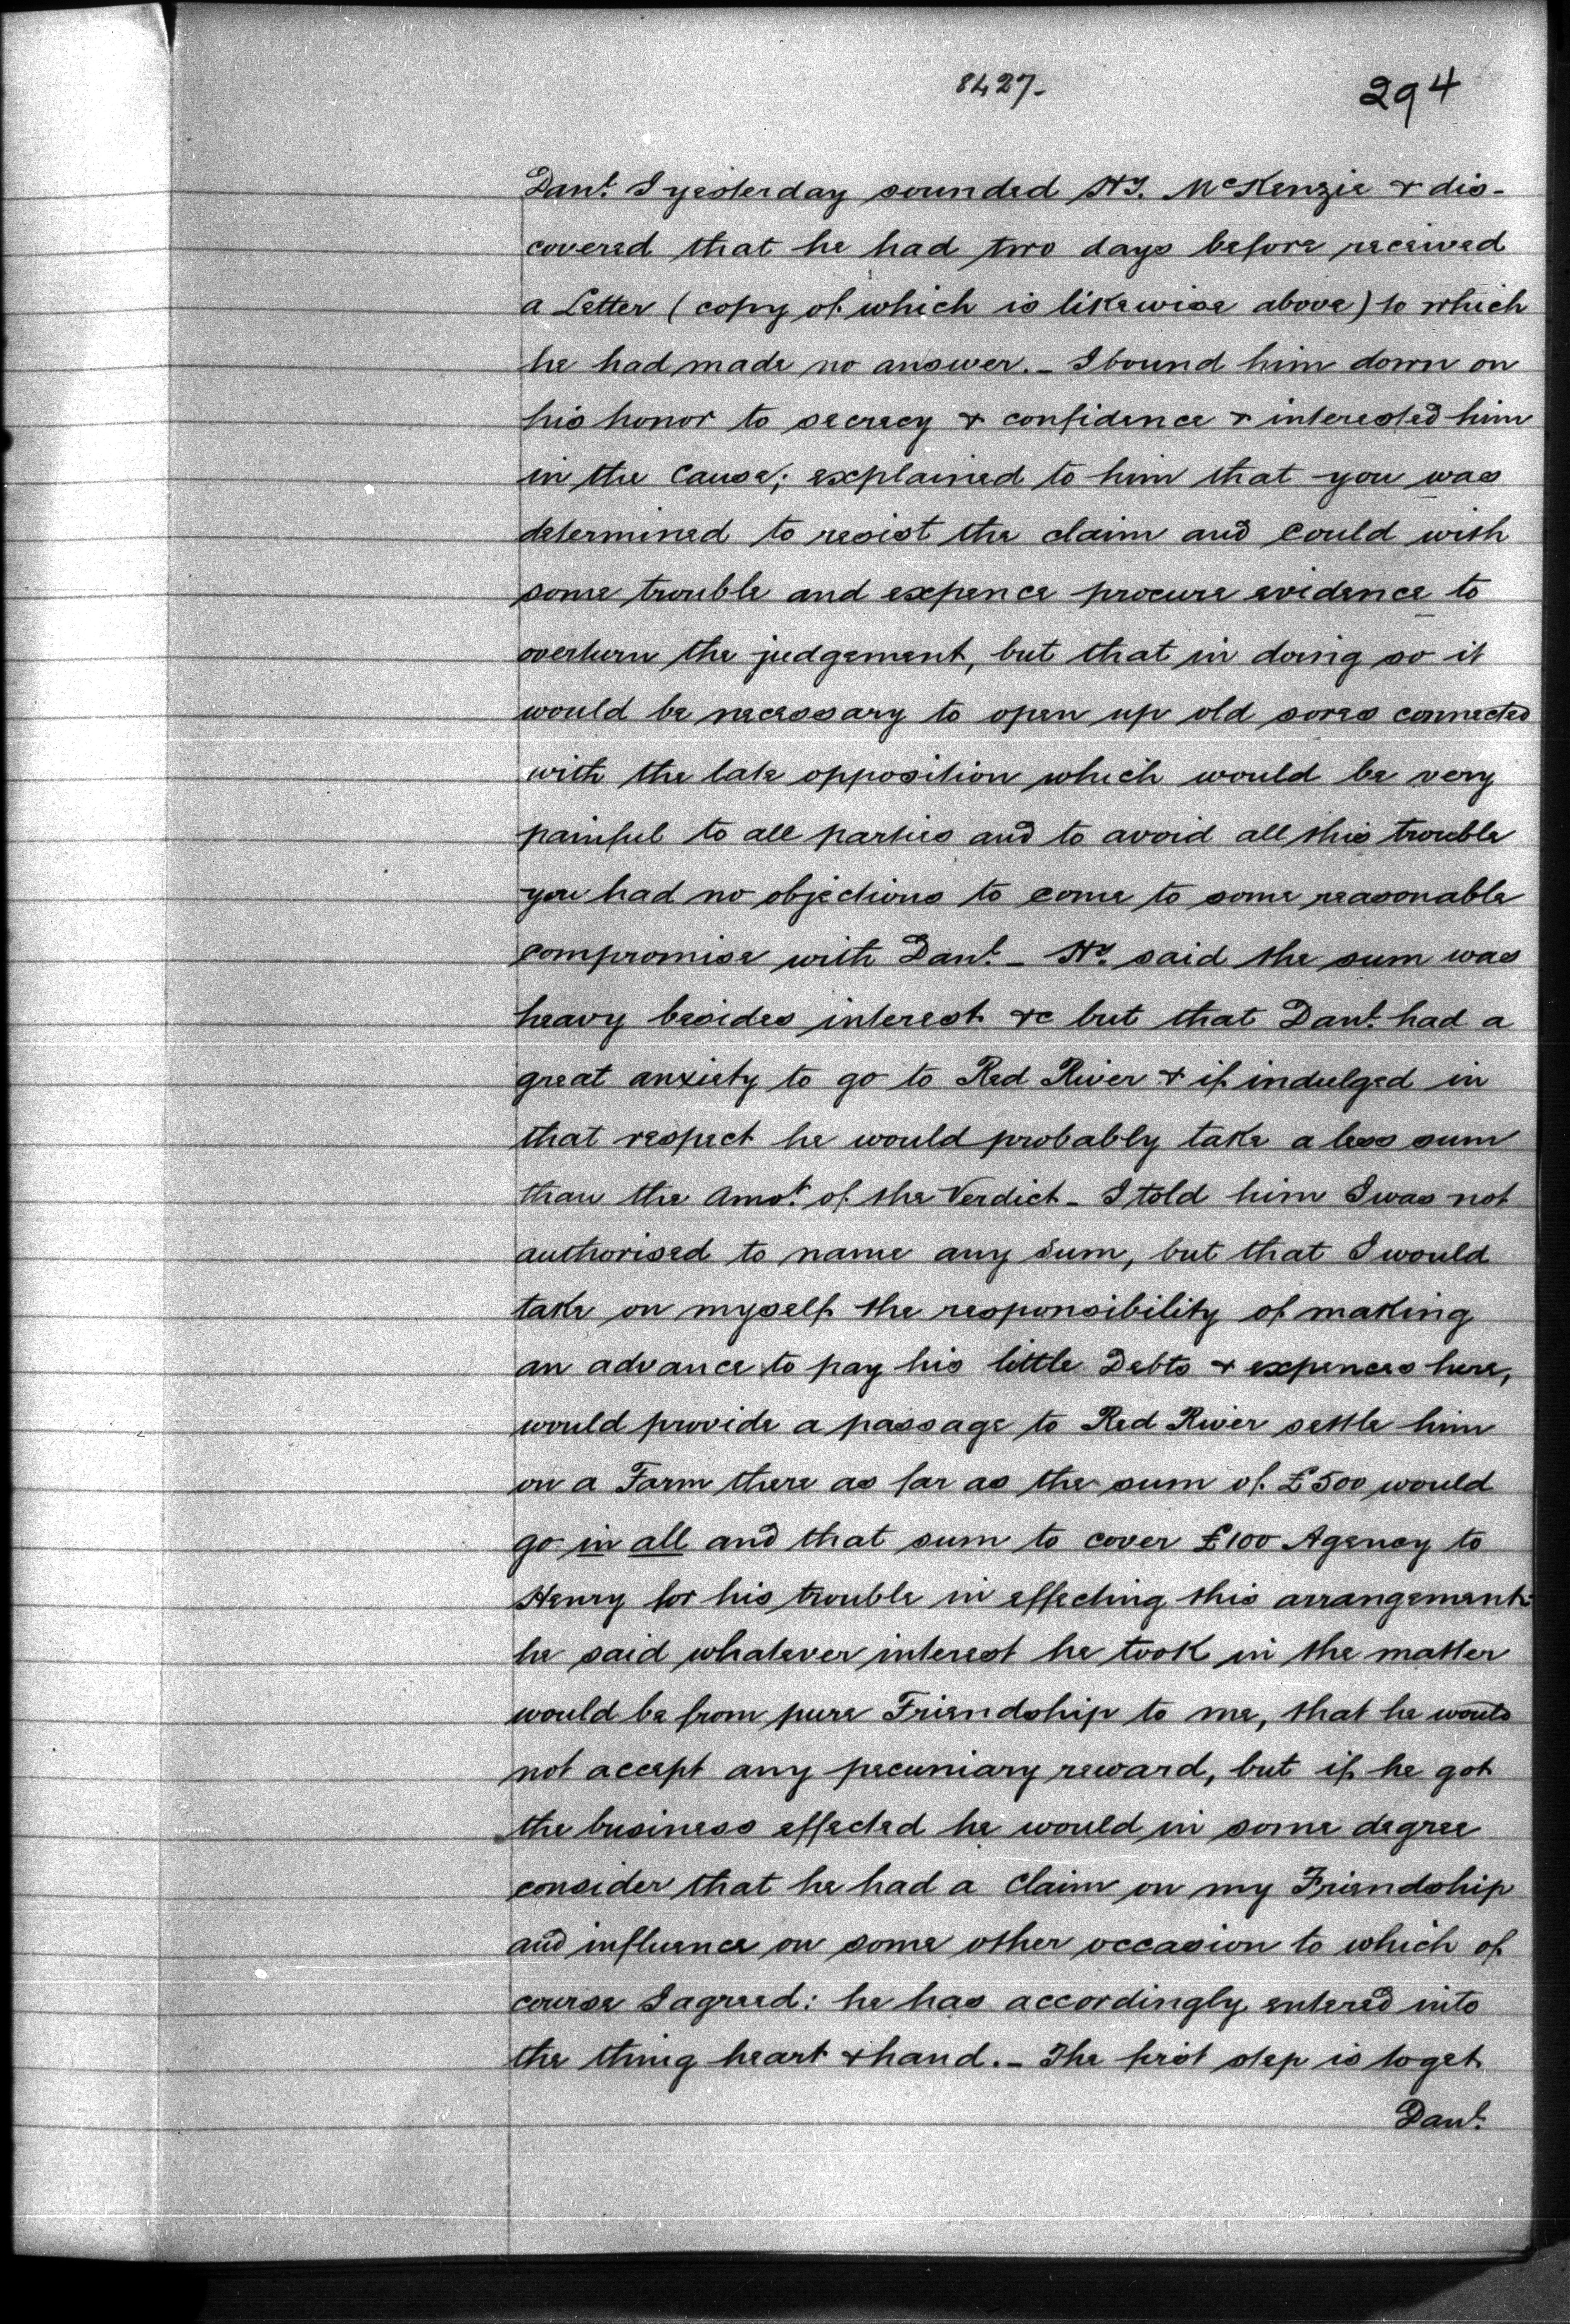 8427-
294
Danl. I yesterday sounded Hy. McKenzie & dis-
covered that he had two days before received
a Letter (copy of which is likewise above) to which
he had made no answer. - I bound him down on
his honor to secrecy & confidence & interested him
in the Cause; explained to him that you was
determined to resist the claim and could with
some trouble and expence procure evidence to
overturn the judgement, but that in doing so it
would be necessary to open up old sores connected
with the late opposition which would be very
painful to all parties and to avoid all this trouble
you had no objections to come to some reasonable
compromise with Danl. - Hy. said the sum was
heavy besides interest &c but that Danl. had a
great anxiety to go to Red River & if indulged in
that respect he would probably take a less sum
than the Amot. of the Verdict - I told him I was not
authorised to name any Sum, but that I would
take on myself the responsibility of making
an advance to pay his little Debts & expences here,
would provide a passage to Red River settle him
on a Farm there as far as the sum of £500 would
go in all and that sum to cover £100 Agency to
Henry for his trouble in effecting this arrangement:
he said whatever interest he took in the matter
would be from pure Friendship to me, that he would
not accept any pecuniary reward, but if he got
the business effected he would in some degree
consider that he had a Claim on my Friendship
and influence on some other occasion to which of
course I agreed: he has accordingly entered into
the thing heart & hand. - The first step is to get
Danl.